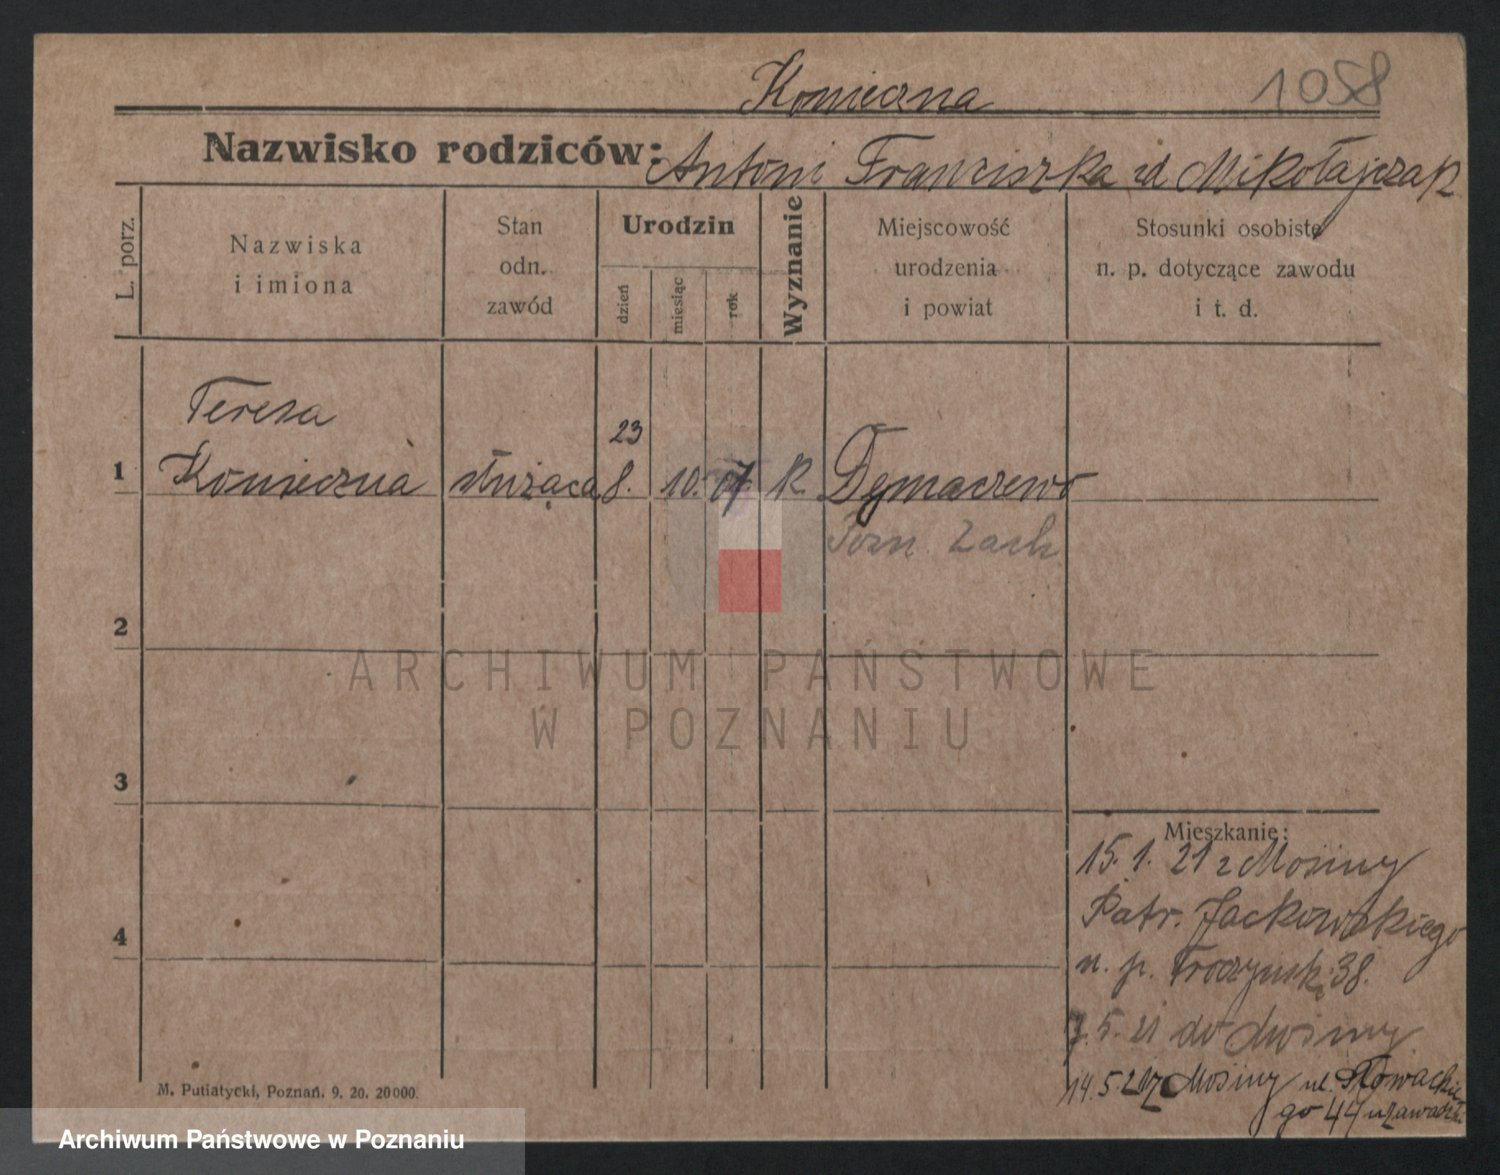 Konieczna 1058
Nazwisko rodziców: Antoni Franciszka zd Mikołajczak
L. porz.
Nazwiska
i imiona
Stan
odn.
zawód
Urodzin
dzień
miesiąc
rok
Wyznanie
Miejscowość
urodzenia
i powiat
Stosunki osobiste
n. p. dotyczące zawodu
i t. d.
Teresa
23
1 Konieczna służąca 8. 10. 07 R Dymaczewo
Pozn. Zach
2
ARCHIWUM PAŃSTWOWE
W POZNANIU
3
Mieszkanie:
15. 1. 21 z Mosiny
Patr. Jackowskiego
4
n. p. 38.
7. 5. 21 do Mosiny
14. 5. 21 z Mosiny ul. Słowackie
go 44 u
M. Putiatycki, Poznań. 9. 20. 20000.
Archiwum Państwowe w Poznaniu